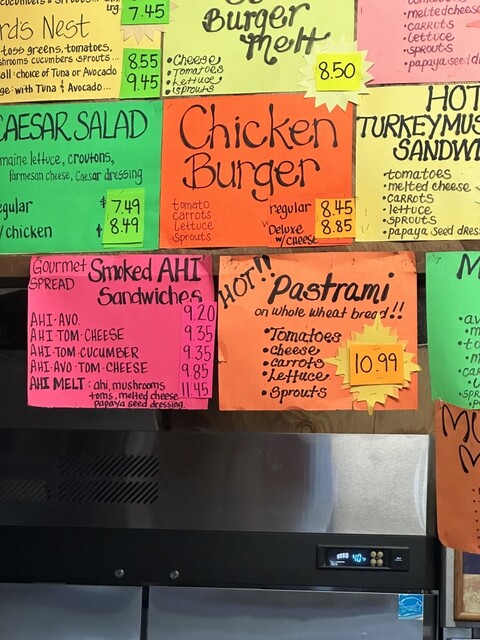 7.45
rd's Nest
toss greens, tomatoes,
mushrooms cucumbers sprouts...
all: choice of Tuna or Avocado
ge: with Tuna & Avocado...
8.55
9.45
Burger
Melt
• Cheese
• Tomatoes
• Lettuce
• Sprouts
8.50
• melted cheese
• carrots
• lettuce
• sprouts
• papaya seed
CAESAR SALAD
maine lettuce, croutons,
Parmesan cheese, Caesar dressing
egular $ 7.49
w/chicken $ 8.49
Chicken
Burger
tomato
carrots
lettuce
sprouts
regular 8.45
Deluxe 8.85
w/cheese
HOT
TURKEY MUS
SANDWI
• tomatoes
• melted cheese
• carrots
• lettuce
• sprouts
• papaya seed dres
Gourmet
SPREAD
Smoked AHI
Sandwiches
AHI·AVO. 9.20
AHI·TOM·CHEESE 9.35
AHI·TOM·CUCUMBER 9.35
AHI·AVO·TOM·CHEESE 9.85
AHI MELT: ahi, mushrooms 11.45
toms, melted cheese
papaya seed dressing.
HOT!!
Pastrami
on whole wheat bread!!
• Tomatoes
• cheese
• carrots
• Lettuce
• Sprouts
10.99